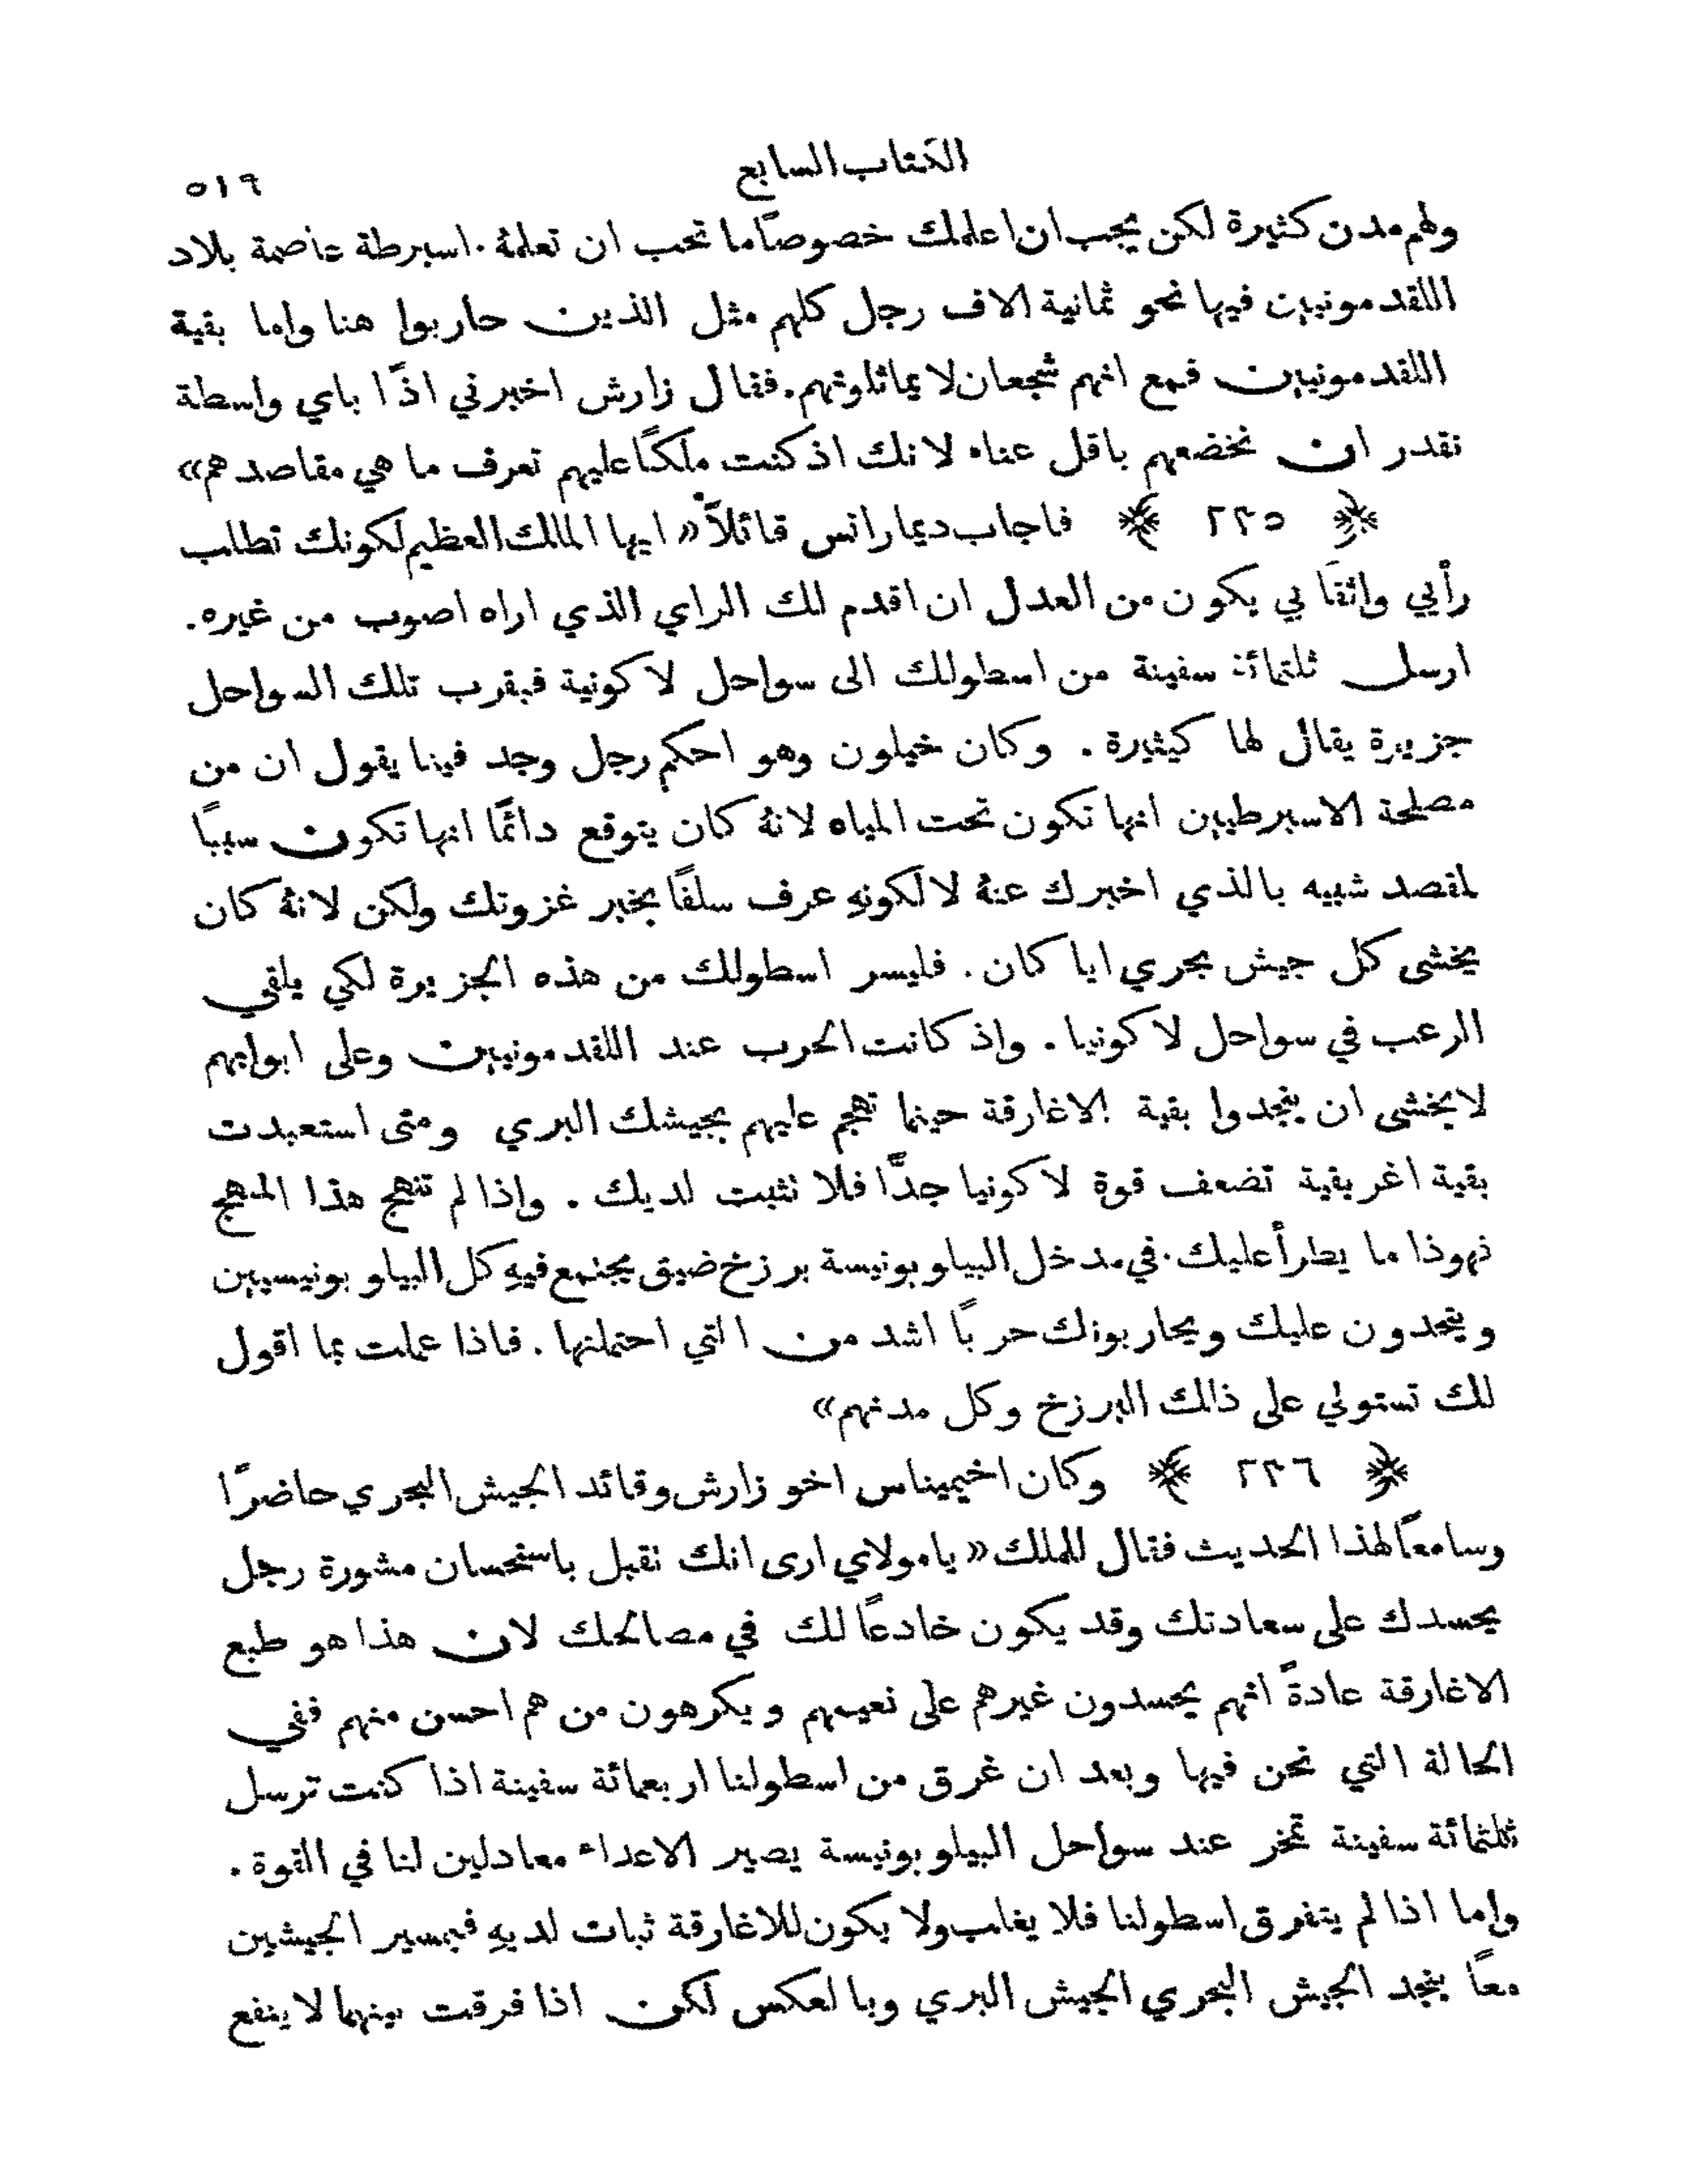 الكتاب السابع
٥١٩
ولهم مدن كثيرة لكن يجب ان اعلمك خصوصاً ما تحب ان تعلمهُ. اسبرطة عاصمة بلاد
اللقدمونيين فيها نحو ثمانية الاف رجل كلهم مثل الذين حاربوا هنا واما بقية
اللقدمونيين فمع انهم شجعان لا يماثلونهم. فقال زارش اخبرني اذًا باي واسطة
نقدر ان نخضعهم باقل عناء لانك اذ كنت ملكًا عليهم تعرف ما هي مقاصدهم»
﴿ ٢٣٥ ﴾ فاجاب ديماراتس قائلاً «ايها الملك العظيم لكونك تطلب
رأيي واثقًا بي يكون من العدل ان اقدم لك الراي الذي اراه اصوب من غيره.
ارسل ثلثمائة سفينة من اسطولك الى سواحل لاكونية فبقرب تلك السواحل
جزيرة يقال لها كيثيرة. وكان خيلون وهو احكم رجل وجد فينا يقول ان من
مصلحة الاسبرطيين انها تكون تحت المياه لانهُ كان يتوقع دائمًا انها تكون سببًا
لمقصد شبيه بالذي اخبرك عنهُ لا لكونهِ عرف سلفًا بخبر غزوتك ولكن لانهُ كان
يخشى كل جيش بحري ايا كان. فليسر اسطولك من هذه الجزيرة لكي يلقي
الرعب في سواحل لاكونيا. واذ كانت الحرب عند اللقدمونيين وعلى ابوابهم
لا يخشى ان ينجدوا بقية الاغارقة حينما تهجم عليهم بجيشك البري ومتى استعبدت
بقية اغريقية تضعف قوة لاكونيا جدًّا فلا تثبت لديك. واذا لم تنهج هذا المنهج
فهوذا ما يطرأ عليك. في مدخل البيلوبونيسة برزخ ضيق يجتمع فيهِ كل البيلوبونيسيين
ويتحدون عليك ويحاربونك حربًا اشد من التي احتملتها. فاذا عملت بما اقول
لك تستولي على ذالك البرزخ وكل مدنهم»
﴿ ٢٣٦ ﴾ وكان اخيميناس اخو زارش وقائد الجيش البحري حاضرًا
وسامعًا لهذا الحديث فقال للملك «يا مولاي ارى انك تقبل باستحسان مشورة رجل
يحسدك على سعادتك وقد يكون خادعًا لك في مصالحك لان هذا هو طبع
الاغارقة عادةً انهم يحسدون غيرهم على نعيمهم ويكرهون من هم احسن منهم ففي
الحالة التي نحن فيها وبعد ان غرق من اسطولنا اربعمائة سفينة اذا كنت ترسل
ثلثمائة سفينة تمخر عند سواحل البيلوبونيسة يصير الاعداء معادلين لنا في القوة.
واما اذا لم يتفرق اسطولنا فلا يغلب ولا يكون للاغارقة ثبات لديهِ فبمسير الجيشين
معًا ينجد الجيش البحري الجيش البري وبالعكس لكن اذا فرقت بينهما لا ينفع